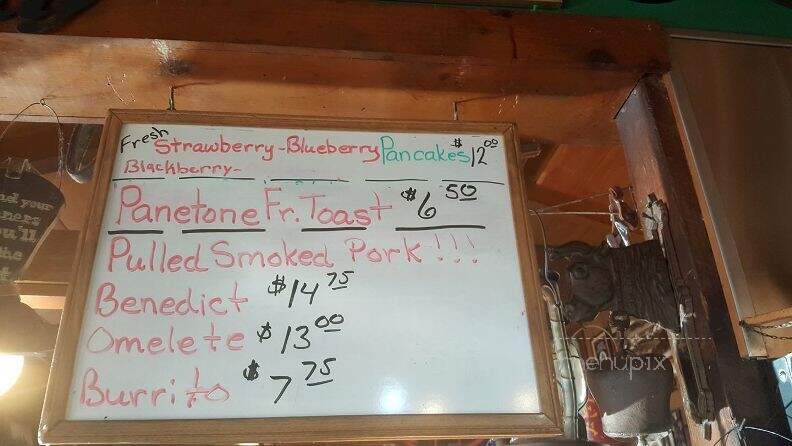 Fresh Strawberry-Blueberry Pancakes $12.00
Blackberry-
Panetone Fr. Toast $6 50
Pulled Smoked Pork!!!
Benedict $14 75
Omelete $13 00
Burrito $7 75
nd your
ners
u'll
the
menupix